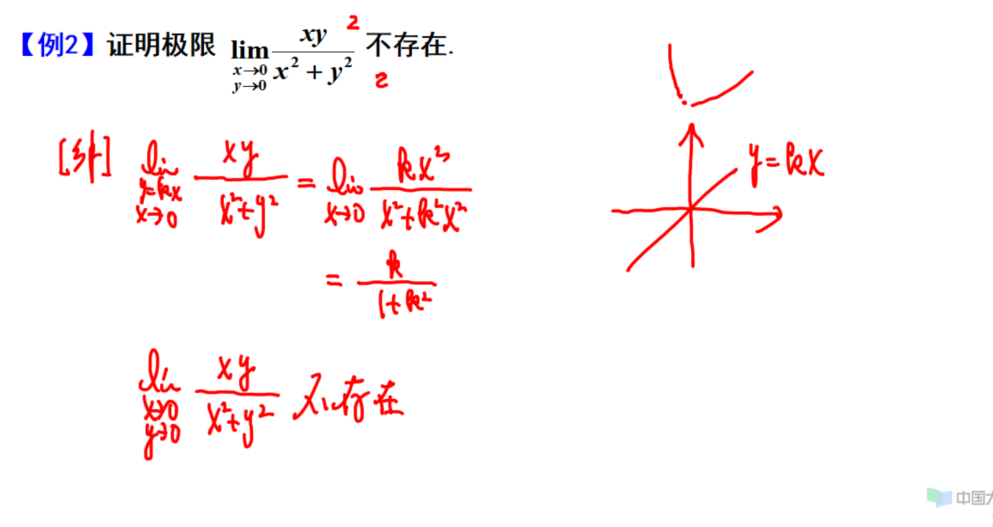 【例2】证明极限 lim x→0 y→0 xy/(x²+y²) 不存在.
2
2
[解] lim y=kx x→0 xy/(x²+y²) = lim x→0 kx²/(x²+k²x²)
= k/(1+k²)
lim x→0 y→0 xy/(x²+y²) 不存在
y=kx
中国大